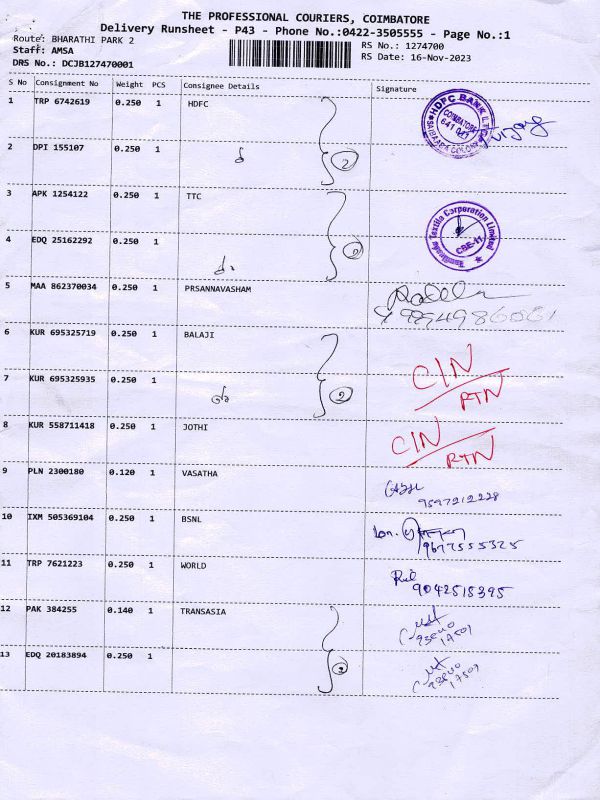 THE PROFESSIONAL COURIERS, COIMBATORE
Delivery Runsheet - P43 - Phone No.:0422-3505555 - Page No.:1
Route: BHARATHI PARK 2
RS No.: 1274700
Staff: AMSA
RS Date: 16-Nov-2023
DRS No.: DCJB127470001
S No Consignment No Weight PCS Consignee Details Signature
1 TRP 6742619 0.250 1 HDFC
HDFC BANK LTD
COIMBATORE
641 041
SAIBABA COLONY
2 DPI 155107 0.250 1
2
3 APK 1254122 0.250 1 TTC
Textile Corporation Limited
CBE-11
4 EDQ 25162292 0.250 1
2
5 MAA 862370034 0.250 1 PRSANNAVASHAM
6 KUR 695325719 0.250 1 BALAJI
CIN
RTN
7 KUR 695325935 0.250 1
2
8 KUR 558711418 0.250 1 JOTHI
CIN
RTN
9 PLN 2300180 0.120 1 VASATHA
9597212228
10 IXM 505369104 0.250 1 BSNL
9677555325
11 TRP 7621223 0.250 1 WORLD
9042518395
12 PAK 384255 0.140 1 TRANSASIA
13 EDQ 20183894 0.250 1
2